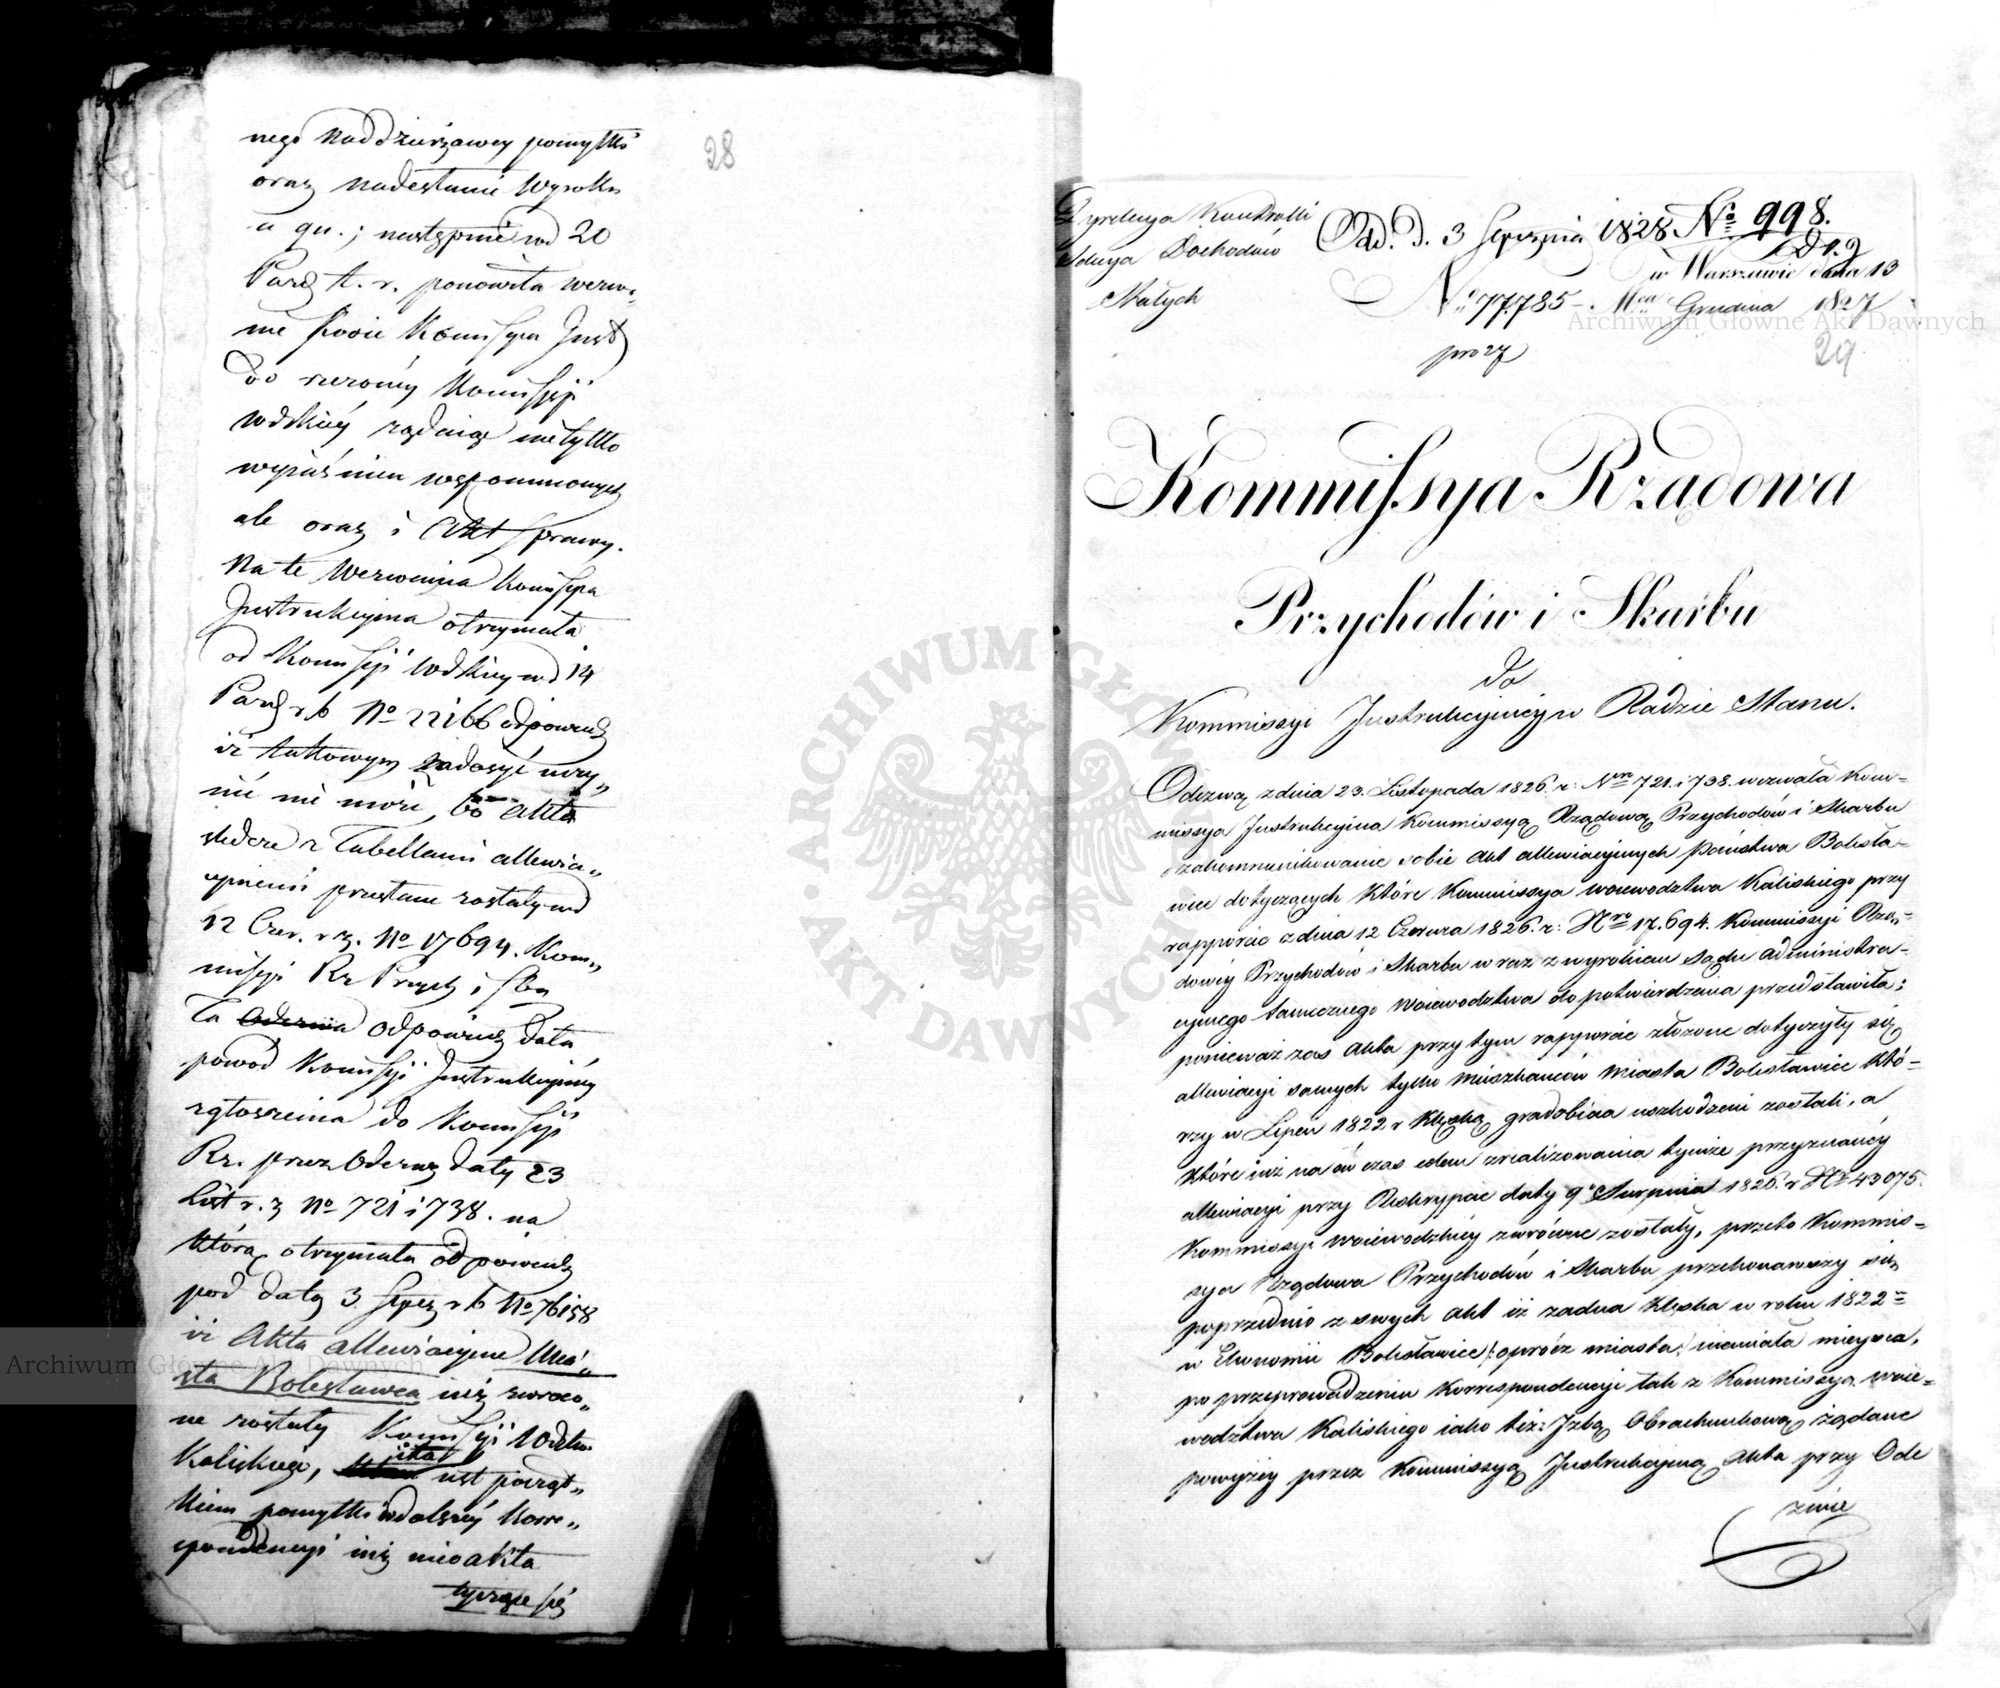 28
nego naddzierżawcy pomyłki
oraz nadesłanie Wyroku
a qu.; następnie pod 20
Pazd. t. r. ponowiła wezwa„
nie swoie Kommissya Inst
do rzeczonéy Kommissyi
wdzkiéy żądaiąc nietylko
wyiaśnień wspomnionych
ale oraz i Akt sprawy.
Na te Wezwania Kommissya
Instrukcyina otrzymała
od Kommissyi Wdzkiey pod 14
Pazd. r. b. No 22166 odpowiedź
iż takowym zadosyć uczy„
nić nie może, bo akta
śledcze z Tabellami allewia„
cyinemi przesłane zostały pod
12 Czer. r. z. No 17694. Kom„
missyi Rz. Przych. i Sbu
Ta odpowiedź dała
powód Kommissyi Instrukcyinéy
zgłoszenia do Kommissyi
Rz. przez Odezwę daty 23
List. r. z. No 721 i 738. na
którą otrzymała odpowiedź
pod datą 3 Stycz. r. b. No 76158
iż Akta allewiacyine Mia„
sta Bolesławca iuż zwróco„
ne zostały Kommissyi Wdztwa
Kaliskiego, iest począt„
kiem pomyłki w dalszéy korre„
spondencyi iuż nie o akta
tyczące się
Dyrekcya Kontrolli
Sekcya Dochodów
Stałych
Odd. d. 3 Stycznia 1828 No 998.
w Warszawie dnia 13
No 77,785 Mca Grudnia 1827
29
Kommissya Rządowa
Przychodów i Skarbu
do
Kommissyi Instrukcyinéy w Radzie Stanu.
Odezwą z dnia 23. Listopada 1826. r: Nrm 721. i 738. wezwała Kom=
missya Instrukcyina Kommissyą Rządową Przychodów i Skarbu
o zakommunikowanie sobie akt allewiacyinych Państwa Bolesła=
wice dotyczących które Kommissya woiewodztwa Kaliskiego przy
rapporcie z dnia 12 Czerwca 1826. r: Nro 17.694. Kommissyi Rzą=
dowéy Przychodów i Skarbu wraz z wyrokiem Sądu Administra=
cyinego tamecznego Woiewodztwa do potwierdzenia przedstawiła;
ponieważ zaś Akta przy tym rapporcie złożone dotyczyły się
allewiacyi samych tylko mieszkańców Miasta Bolesławice któ=
rzy w Lipcu 1822 r klęską gradobicia uszkodzeni zostali, a
które iuż na ów czas celem zrealizowania tymże przyznanéy
allewiacyi przy Reskrypcie daty 9o Sierpnia 1826. r No 43075.
Kommissyi Woiewodzkiéy zwrócone zostały, przeto Kommis=
sya Rządowa Przychodów i Skarbu przekonawszy się
poprzednio z swych akt iż żadna klęska w roku 1822=
w Ekonomii Bolesławice /: oprócz miasta :/ niemiała mieysca,
po przeprowadzeniu korrespondencyi tak z Kommissyą woie=
wodztwa Kaliskiego iako też: Izbą Obrachunkową żądane
powyżéy przez Kommissyą Instrukcyiną akta przy Ode
zwie
ARCHIWUM GŁÓWNE AKT DAWNYCH
Archiwum Główne Akt Dawnych
Archiwum Główne Akt Dawnych